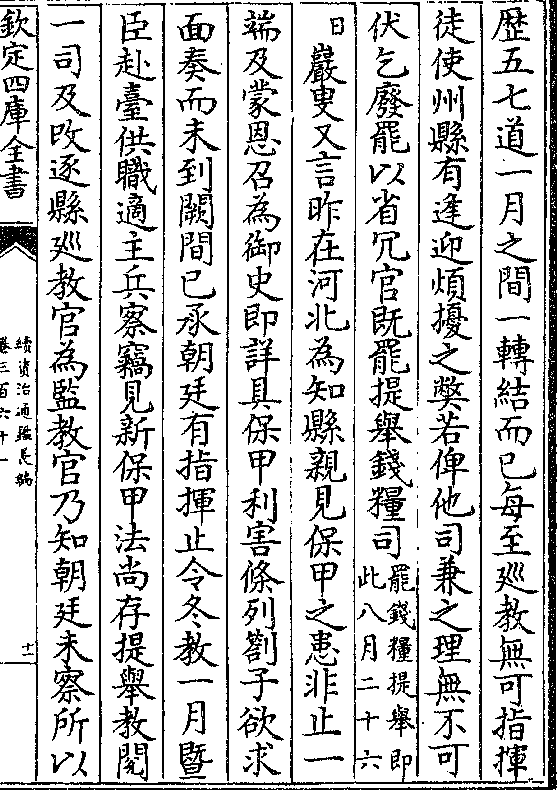 歴五七道一月之間一轉結而已每至廵教無可指揮
徒使州縣有逢迎煩擾之弊若俾他司兼之理無不可
伏乞廢罷以省冗官既罷提舉錢糧司罷錢糧提舉即此八月二十六
日巖叟又言昨在河北為知縣親見保甲之患非止一
端及蒙恩召為御史即詳具保甲利害條列劄子欲求
面奏而未到闕間已承朝廷有指揮止令冬教一月暨
臣赴臺供職適主兵察竊見新保甲法尚存提舉教閱
一司及改逐縣廵教官為監教官乃知朝廷未察所以
欽定四庫全書
續資治通鑑長編
卷三百六十一
十一